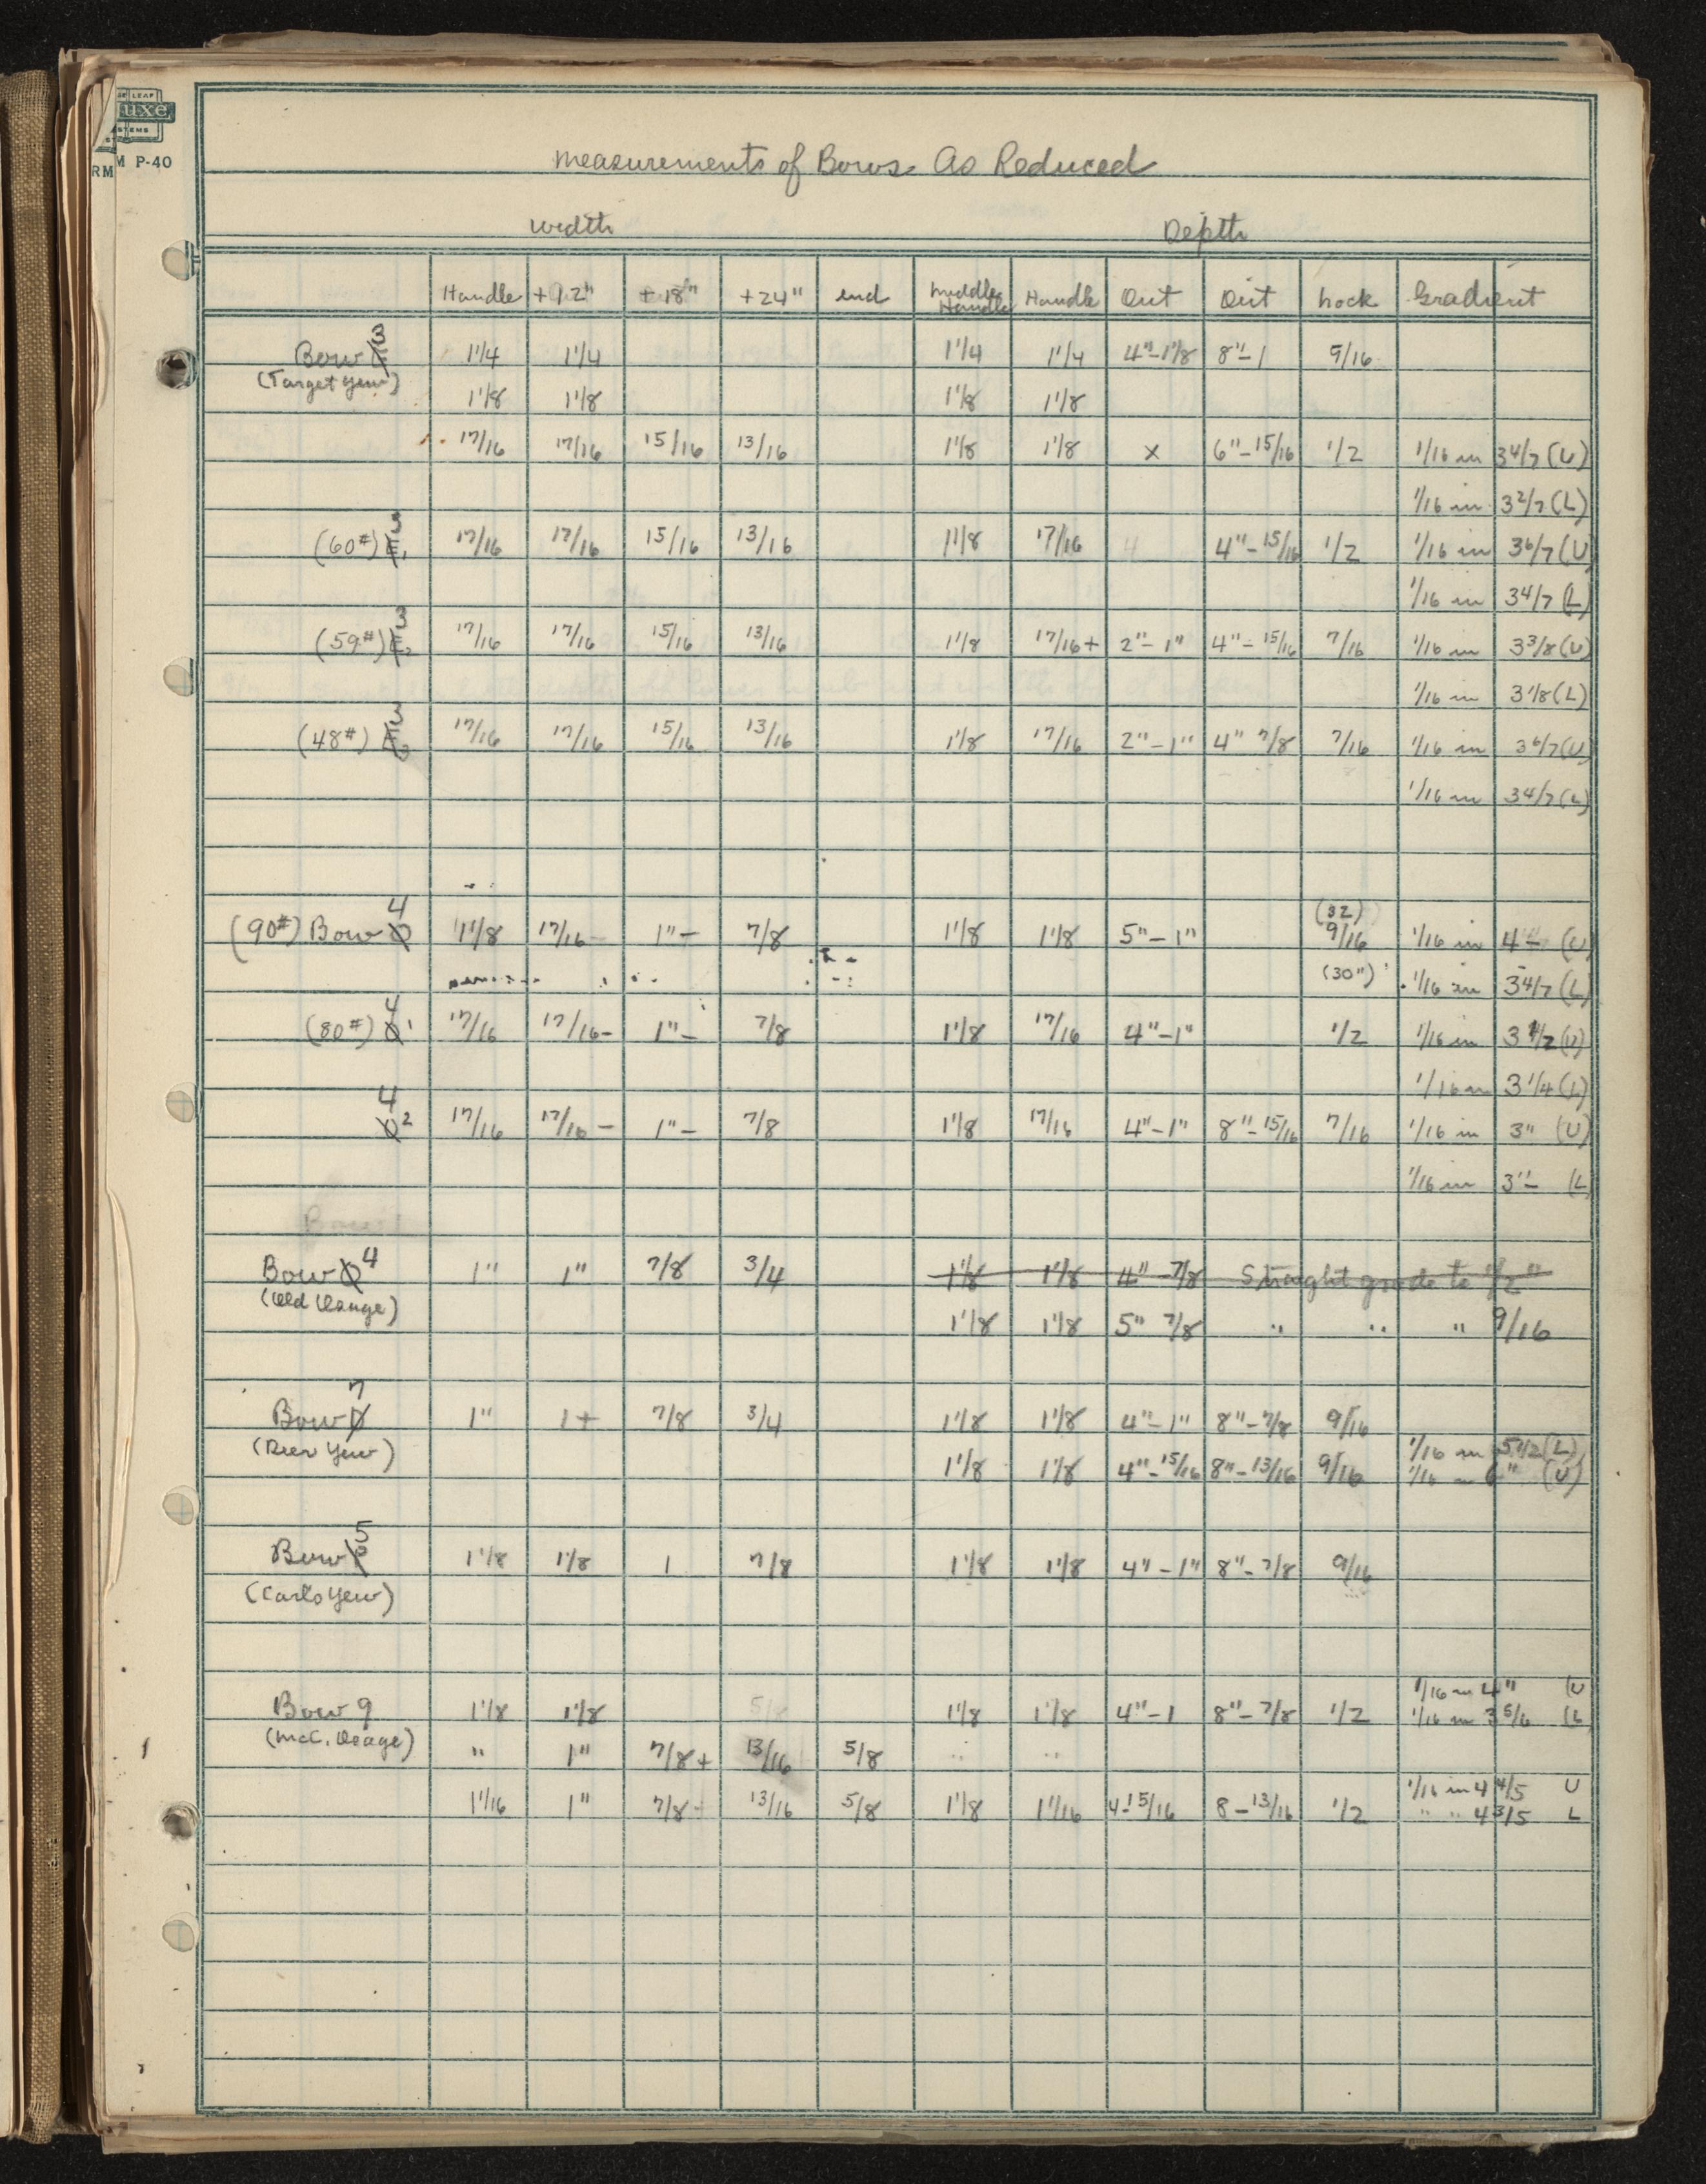 GE LEAF
uxe
STEMS
RM M P-40
Measurements of Bows As Reduced
Width Depth
Handle +12" +18" +24" end Middle Handle Handle Out Out nock Gradient
Bow 3 1 1/4 1 1/4 1 1/4 1 1/4 4"-1 1/8 8"-1 9/16
(Target Yew)
1 1/8 1 1/8 1 1/8 1 1/8
17/16 17/16 15/16 13/16 1 1/8 1 1/8 x 6"-15/16 1/2 1/16 in 3 4/7 (U)
1/16 in 3 2/7 (L)
(60#) 3 17/16 17/16 15/16 13/16 1 1/8 17/16 4 4"-15/16 1/2 1/16 in 3 6/7 (U)
1/16 in 3 4/7 (L)
(59#) 3 17/16 17/16 15/16 13/16 1 1/8 17/16+ 2"-1" 4"-15/16 7/16 1/16 in 3 3/8 (U)
1/16 in 3 1/8 (L)
(48#) 3 17/16 17/16 15/16 13/16 1 1/8 17/16 2"-1" 4" 7/8 7/16 1/16 in 3 6/7 (U)
1/16 in 3 4/7 (L)
(32)
(90#) Bow 4 1 1/8 17/16- 1"- 7/8 1 1/8 1 1/8 5"-1" 9/16 1/16 in 4- (U)
(30") 1/16 in 3 4/7 (L)
(80#) 4 1 17/16 17/16- 1"- 7/8 1 1/8 17/16 4"-1" 1/2 1/16 in 3 1/2 (U)
1/16 in 3 1/4 (L)
4 2 17/16 17/16- 1"- 7/8 1 1/8 17/16 4"-1" 8"-15/16 7/16 1/16 in 3" (U)
1/16 in 3"- (L)
Bow 4 1" 1" 7/8 3/4 1 1/8 1 1/8 4"-7/8 Straight grade to 1/2"
(Old Osage)
1 1/8 1 1/8 5" 7/8 " " " 9/16
Bow 7 1" 1+ 7/8 3/4 1 1/8 1 1/8 4"-1" 8"-7/8 9/16
(Deer Yew) 1/16 in 5 1/2 (L)
1 1/8 1 1/8 4"-15/16 8"-13/16 9/16 1/16 in 6" (U)
Bow 5 1 1/8 1 1/8 1 7/8 1 1/8 1 1/8 4"-1" 8"-7/8 9/16
(Carl's Yew)
1/16 in 4" (U
Bow 9 1 1/8 1 1/8 5/8 1 1/8 1 1/8 4"-1 8"-7/8 1/2 1/16 in 3 5/6 (L
(McC. Osage)
" 1" 7/8+ 13/16 5/8 " "
1/16 in 4 4/5 U
1 1/16 1" 7/8- 13/16 5/8 1 1/8 1 1/16 4-15/16 8-13/16 1/2 " " 4 3/5 L